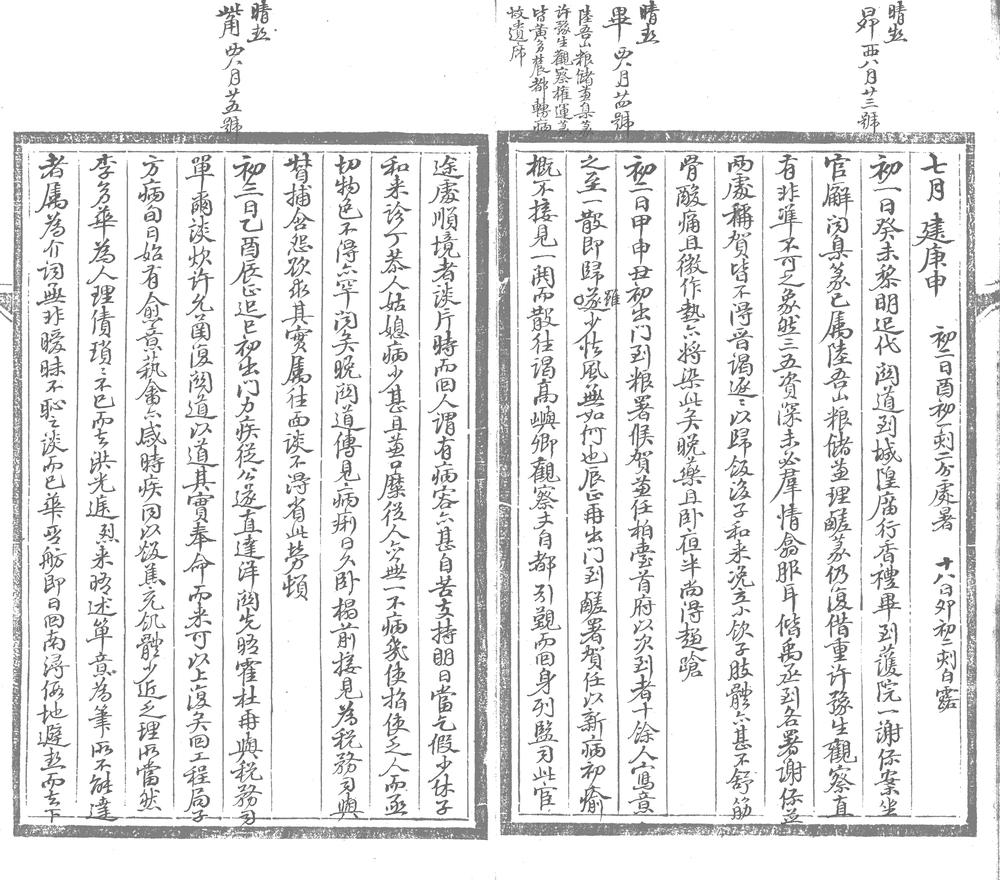 晴熱
昴 西八月廿三號
晴熱
畢 西八月廿四號
陸吾山粮儲黃臬篆
許豫生觀察權運篆
皆黃多農都轉病
故遺席
七月 建庚申 初二日酉初一刻二分處暑 十八日卯初二刻白露
初一日癸未黎明迟代關道到城隍庙行香禮畢到護院一謝保案坐
官廨 聞臬篆已属陸吾山粮儲並理鹾篆仍復借重許豫生觀察直
有非準不可之象然三五資深未必羣情翕服耳偕禹丞到各署謝保並
两處稱賀皆不得晋謁逐〻以歸飯後子和来况立小飲子肢體亦甚不舒筋
骨酸痛且微作熱亦將染此矣晚藥且卧夜半尚得趨蹌
初二日甲申丑初出门到粮署候賀並任柏臺首府以次到者十餘人寓意
之至一散即歸雖遂少怯風無如何也辰正再出门到鹾署賀任以新病初瘉
概不接見一関而散往謁高嶼卿觀察夫自都引覲而回身列監司此官
晴熱
觜 西八月廿五號
途處順境者談片時而回人謂有病容亦甚自苦支持明日當乞假少休子
和来診丁恭人姑媳病少甚且並口糜從人亦無一不病幾使指使乏人而函
切物色不得亦罕聞矣晚関道傳見病痢日久卧榻前接見為税務司與
督捕含怨欲求其實属往面談不得省此勞頓
初三日乙酉辰正迟巳初出门力疾從公遂直達洋関先晤霍杜再與税務司
單爾談炊许允菌復関道以道其實奉命而来可以上復矣回工程局子
方病旬日始有愈意執禽亦感時疾同以飯蕉充飢體少近乏理所當然
李多華為人理债瑣〻不已而去洪光遠烈来晤述箪意為筆所不能達
者属為介词無非曖昧不恥談而已華丞舫即日回南潯何地避熱而去下